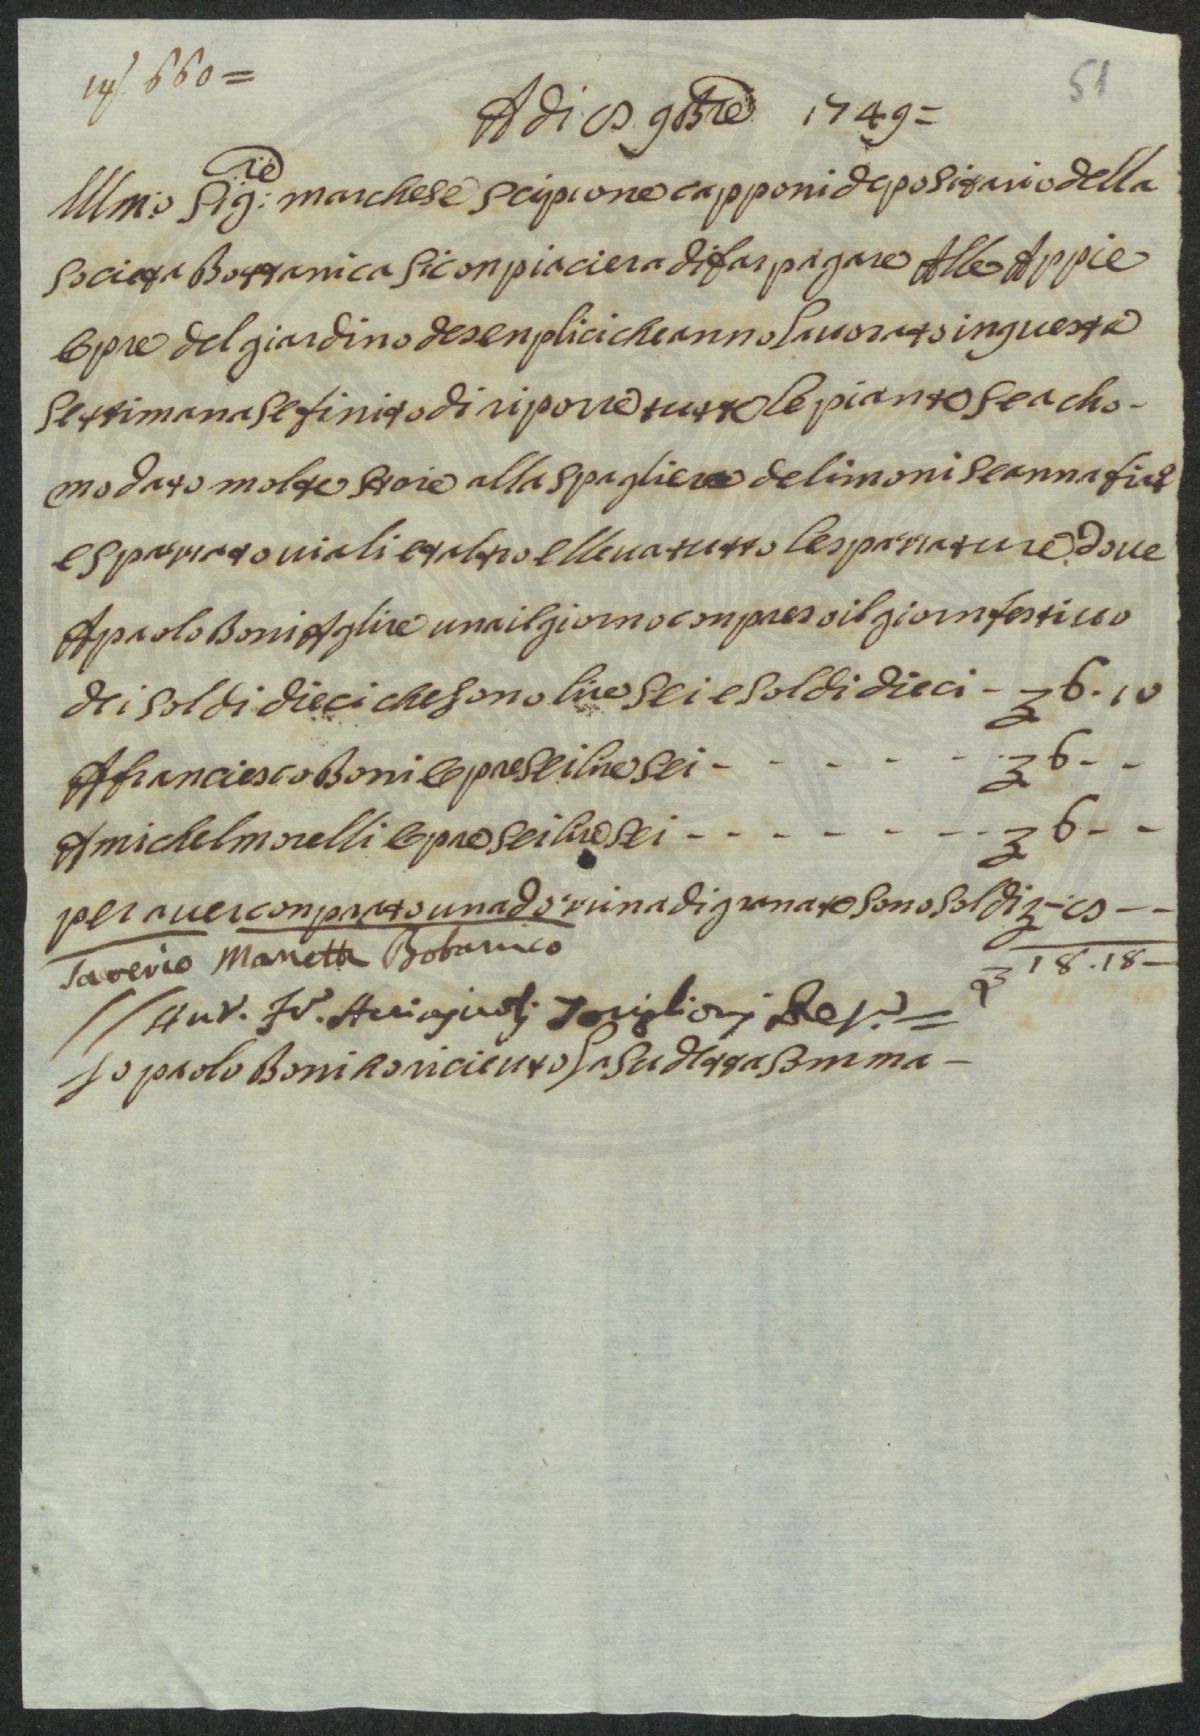 660=
51
Adi 8 9bre 1749=
Illmo: Sig:re marchese Scipione capponi depositario della
Sociata Bottanica si conpiaciera di far pagare Alle Appie
Opre del giardino de senplici che anno Lavorato in questa
Settimana se finito di riporre tutte le piante se acho-
modato molte stoie alla spagliere de limoni se annafiat
e spazzato viali et altro e lleva tutto le spazzature dove
A paolo Boni A glire una il giorno conpreso il giorn festivo
dei soldi dieci che sono lire sei e soldi dieci - 6.10
A franciesco Boni Opre sei lire sei - - - - - - 6 - -
A michel morelli Opre sei lire sei - - - - - - - 6 - -
per aver conprato una dozzina di granate sono soldi - 8 - -
Saverio Manetti Botanico
18.18 -
Io paolo Boni o riceuto La su detta somma -